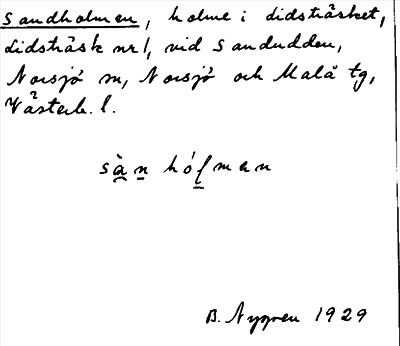 Sandholmen, holme i Lidsträsket,
Lidsträsk nr 1, vid Sandudden,
Norsjö sn, Norsjö och Malå tg,
Västerb. l.
sàn hólman
B. Nygren 1929